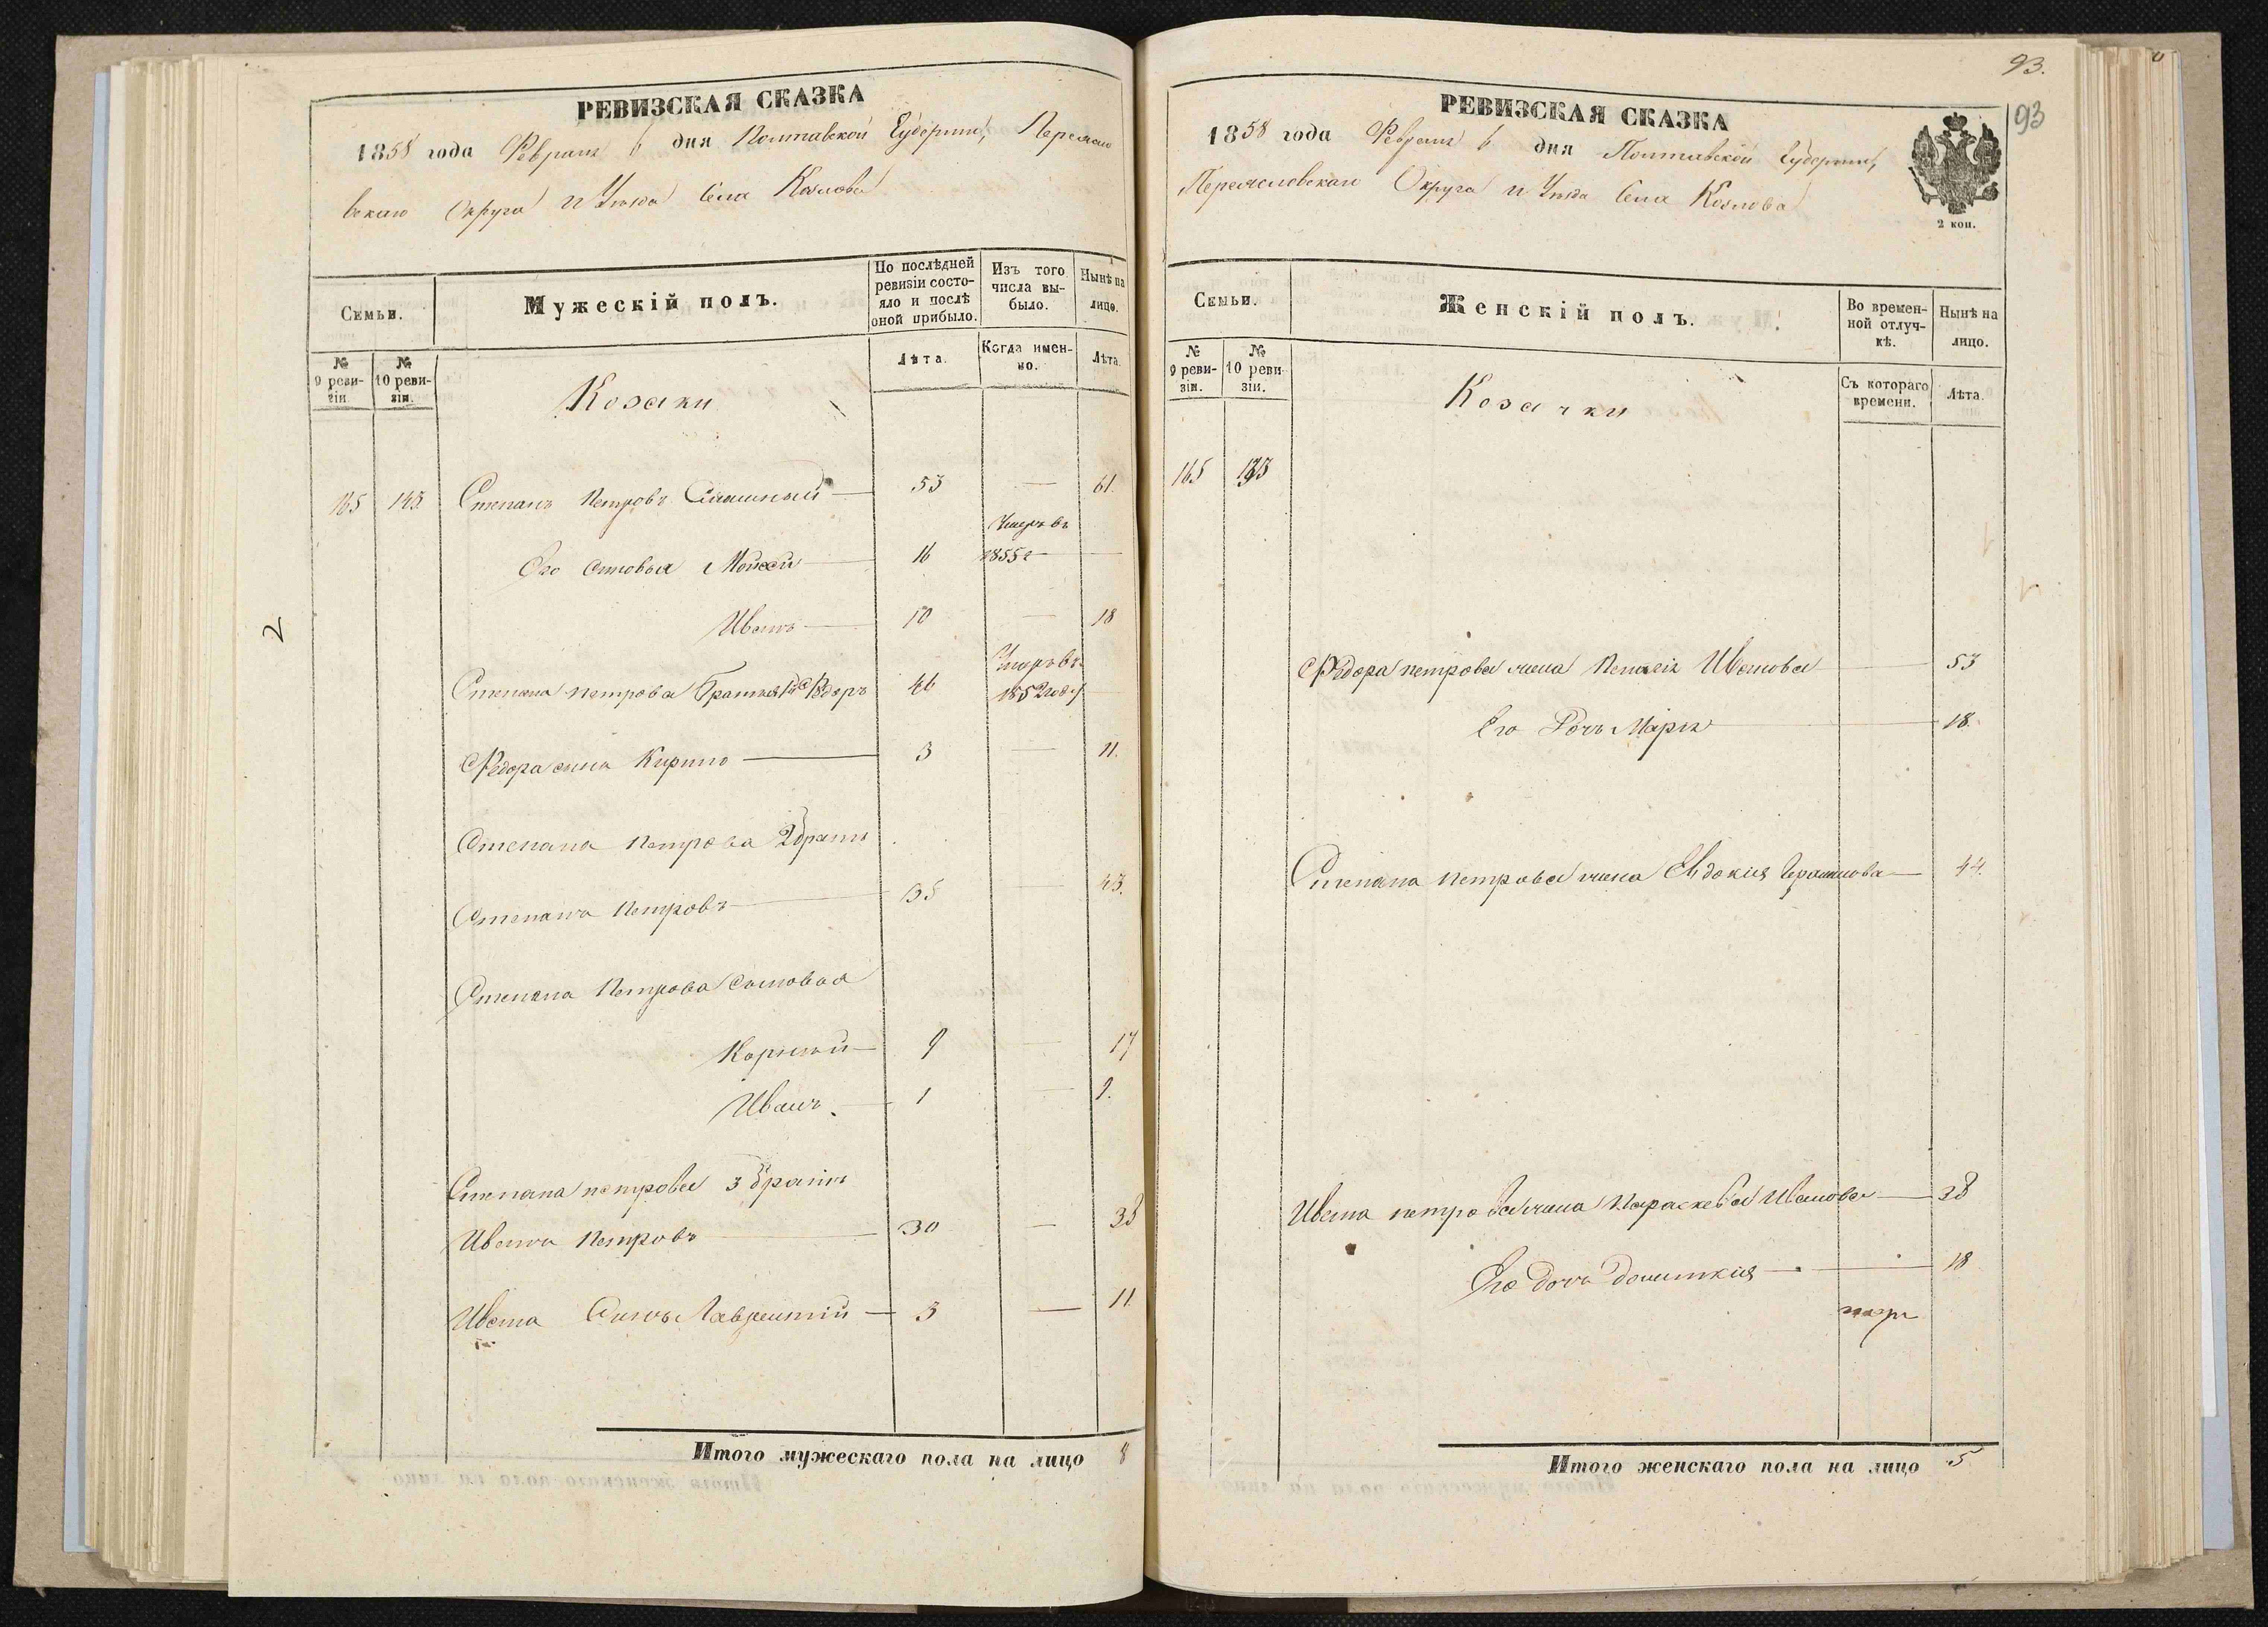 РЕВИЗСКАЯ СКАЗКА
1858 года Февраля 6 дня Полтавской Губернии, Переясло
вскаго Округа и Уезда Села Козлова
Семьи.
Мужескій полъ.
По послѣдней ревизіи состояло и послѣ оной прибыло.
Изъ того числа выбыло.
Нынѣ на лицо.
№ 9 ревизіи.
№ 10 ревизіи.
Лѣта.
Когда именно.
Лѣта.
Козаки
165 143 Степанъ Петровъ 53 — 61.
Умеръ въ
Его сыновья Мойсей 16 1855 г —
Иванъ 10 — 18
Умеръ въ
Степана петрова Братъ 1й Федоръ 46 1852 году
Федора сынъ Кирило 3 — 11.
Степана Петрова 2 братъ
Степанъ Петровъ 35 — 43.
Степана Петрова сыновья
Корнтй 9 — 17
Иванъ 1 — 9.
Степана петрова 3 братъ
Иванъ Петровъ 30 — 38
Ивана Сынъ Лаврентій 3 — 11
Итого мужескаго пола на лицо 8
2
93.
93
РЕВИЗСКАЯ СКАЗКА
1858 года Февраля 6 дня Полтавской Губернии,
Переясловскаго Округа и Уезда Села Козлова
2 коп.
Семьи.
Женскій полъ.
Во временной отлучкѣ.
Нынѣ на лицо.
№ 9 ревизіи.
№ 10 ревизіи.
Съ котораго времени.
Лѣта.
Козачки
165 143
Федора петрова жена Пелагія Иванова 53
Его Дочь Марія 18.
Степана петрова жена Евдокія Герасимова 44.
Ивана петрова жена Параскева Иванова 38
Его дочь 18
Итого женскаго пола на лицо 5